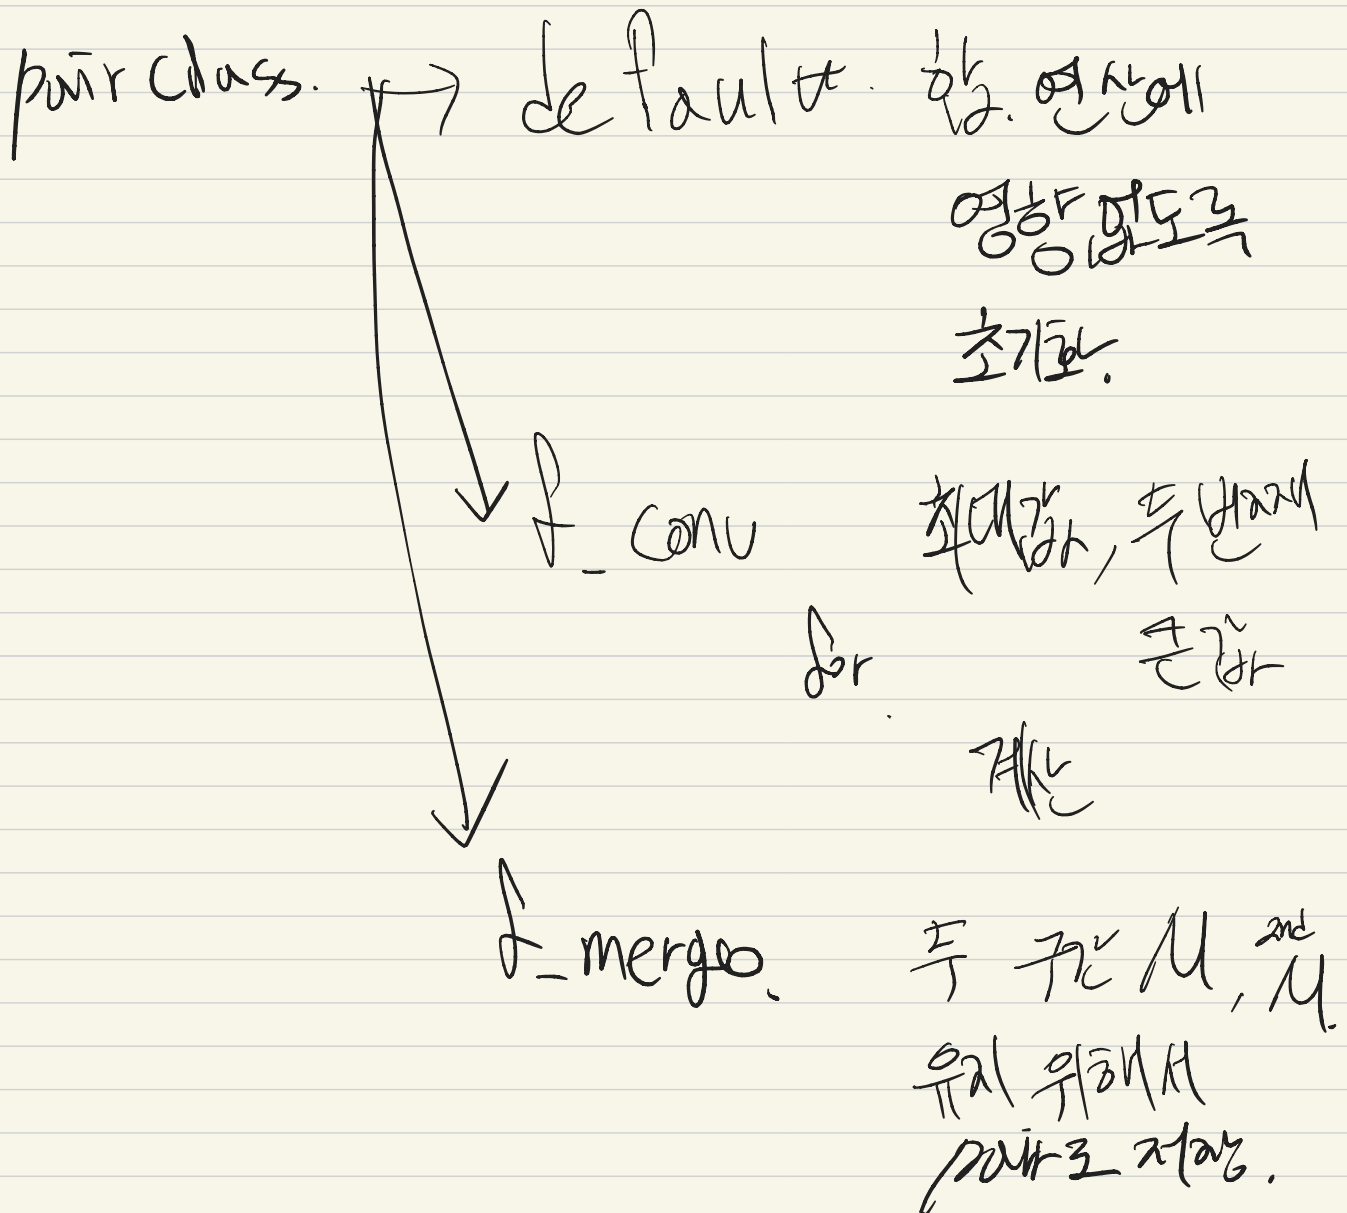 pair class. → default. 합. 연산에
영향 없도록
초기화.
f_conv 최대값, 두 번째
for 큰 값
계산
f_merge. 두 구간 M, 2nd M.
유지 위해서
pair로 저장.